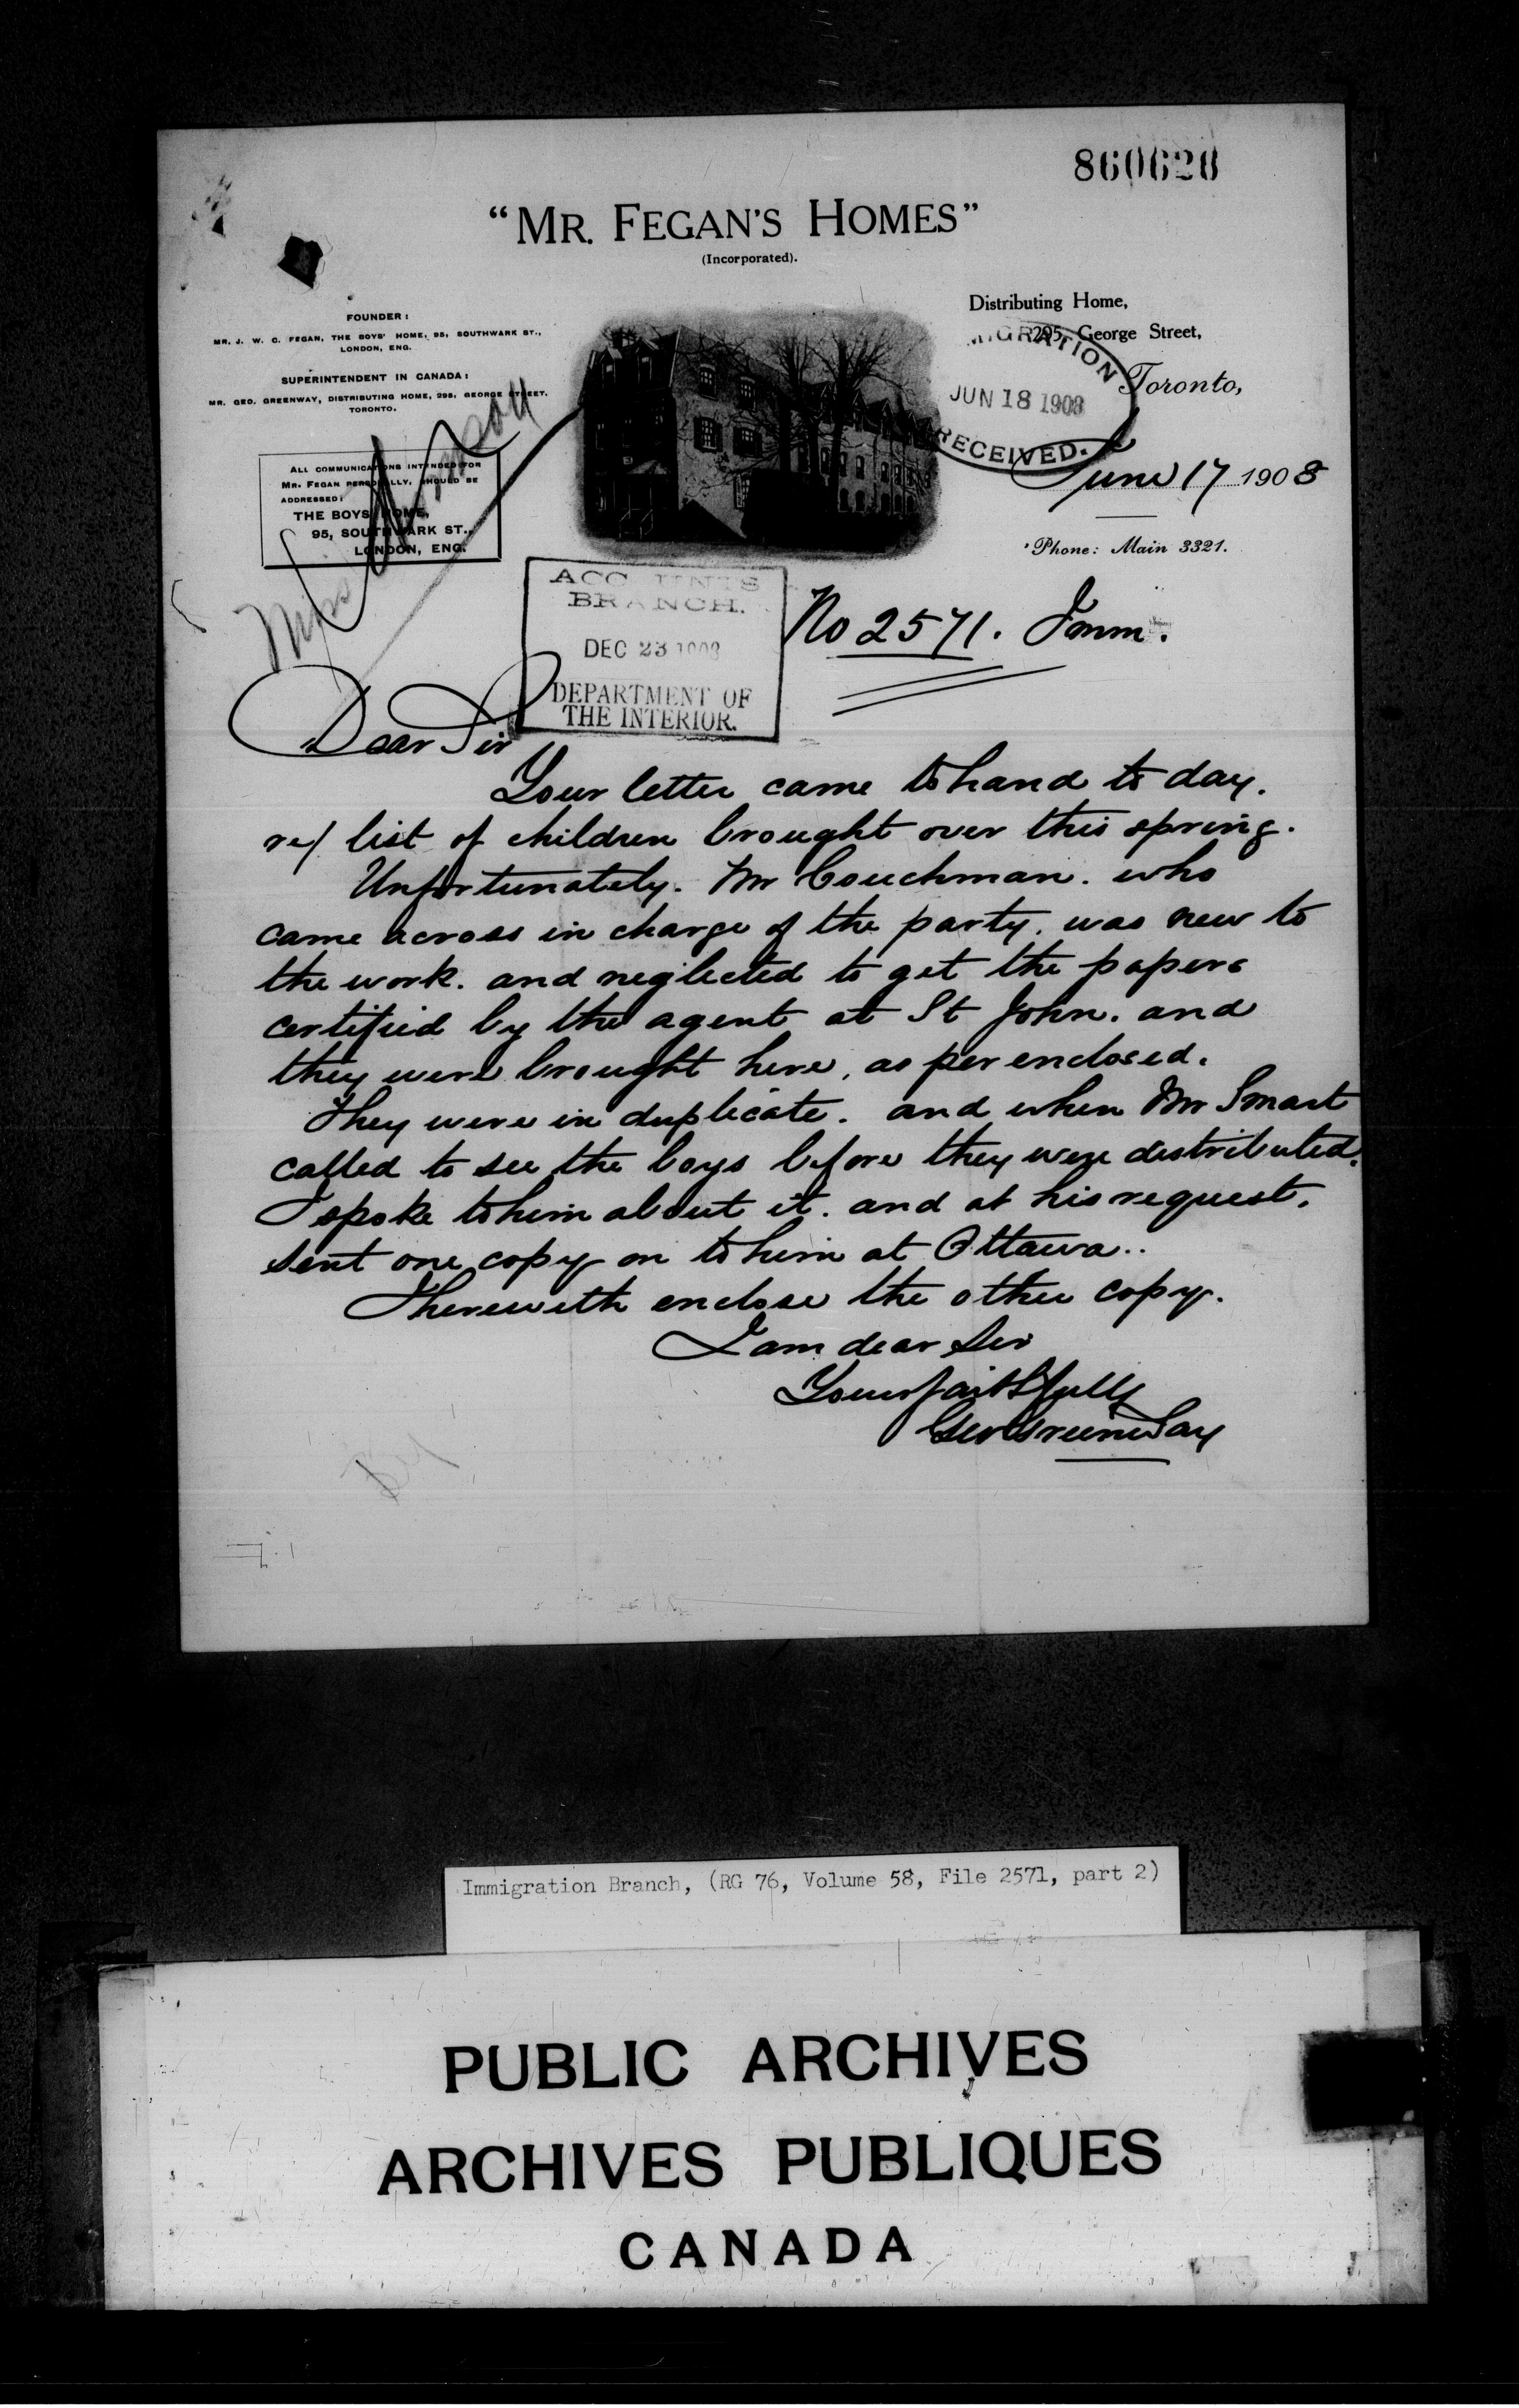 860628
"MR. FEGAN'S HOMES"
(Incorporated).
FOUNDER:
MR. J. W. C. FEGAN, THE BOYS' HOME, 95, SOUTHWARK ST.,
LONDON, ENG.
SUPERINTENDENT IN CANADA:
MR. GEO. GREENWAY, DISTRIBUTING HOME, 295, GEORGE STREET,
TORONTO.
ALL COMMUNICATIONS INTENDED FOR
MR. FEGAN PERSONALLY, SHOULD BE
ADDRESSED:
THE BOYS' HOME,
95, SOUTHWARK ST.,
LONDON, ENG.
Distributing Home,
295, George Street,
Toronto,
IMMIGRATION
JUN 18 1908
RECEIVED.
June 17 1908
Phone: Main 3321.
ACCOUNTS
BRANCH.
DEC 23 1908
DEPARTMENT OF
THE INTERIOR.
No 2571. Imm.
Dear Sir
Your letter came to hand to day.
re/ list of children brought over this spring.
Unfortunately. Mr Couchman. who
came across in charge of the party. was new to
the work. and neglected to get the papers
certified by the agent at St John. and
they were brought here, as per enclosed.
They were in duplicate. and when Mr Smart
called to see the boys before they were distributed.
I spoke to him about it. and at his request.
sent one copy on to him at Ottawa..
I herewith enclose the other copy.
I am dear Sir
Yours faithfully
Geo Greenway
Immigration Branch, (RG 76, Volume 58, File 2571, part 2)
PUBLIC ARCHIVES
ARCHIVES PUBLIQUES
CANADA